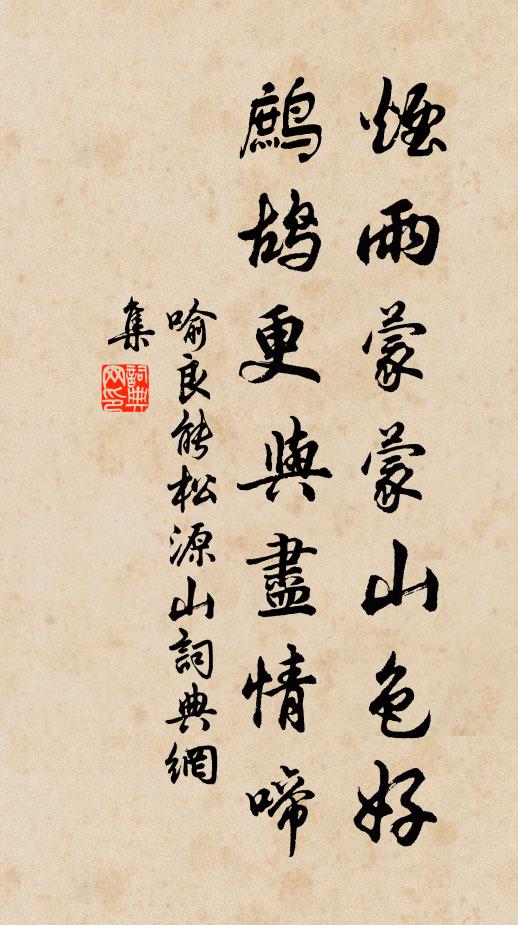 煙雨蒙蒙山色好
鷓鴣更與盡情啼
喻良能松源山詞典網
集
詞典網印